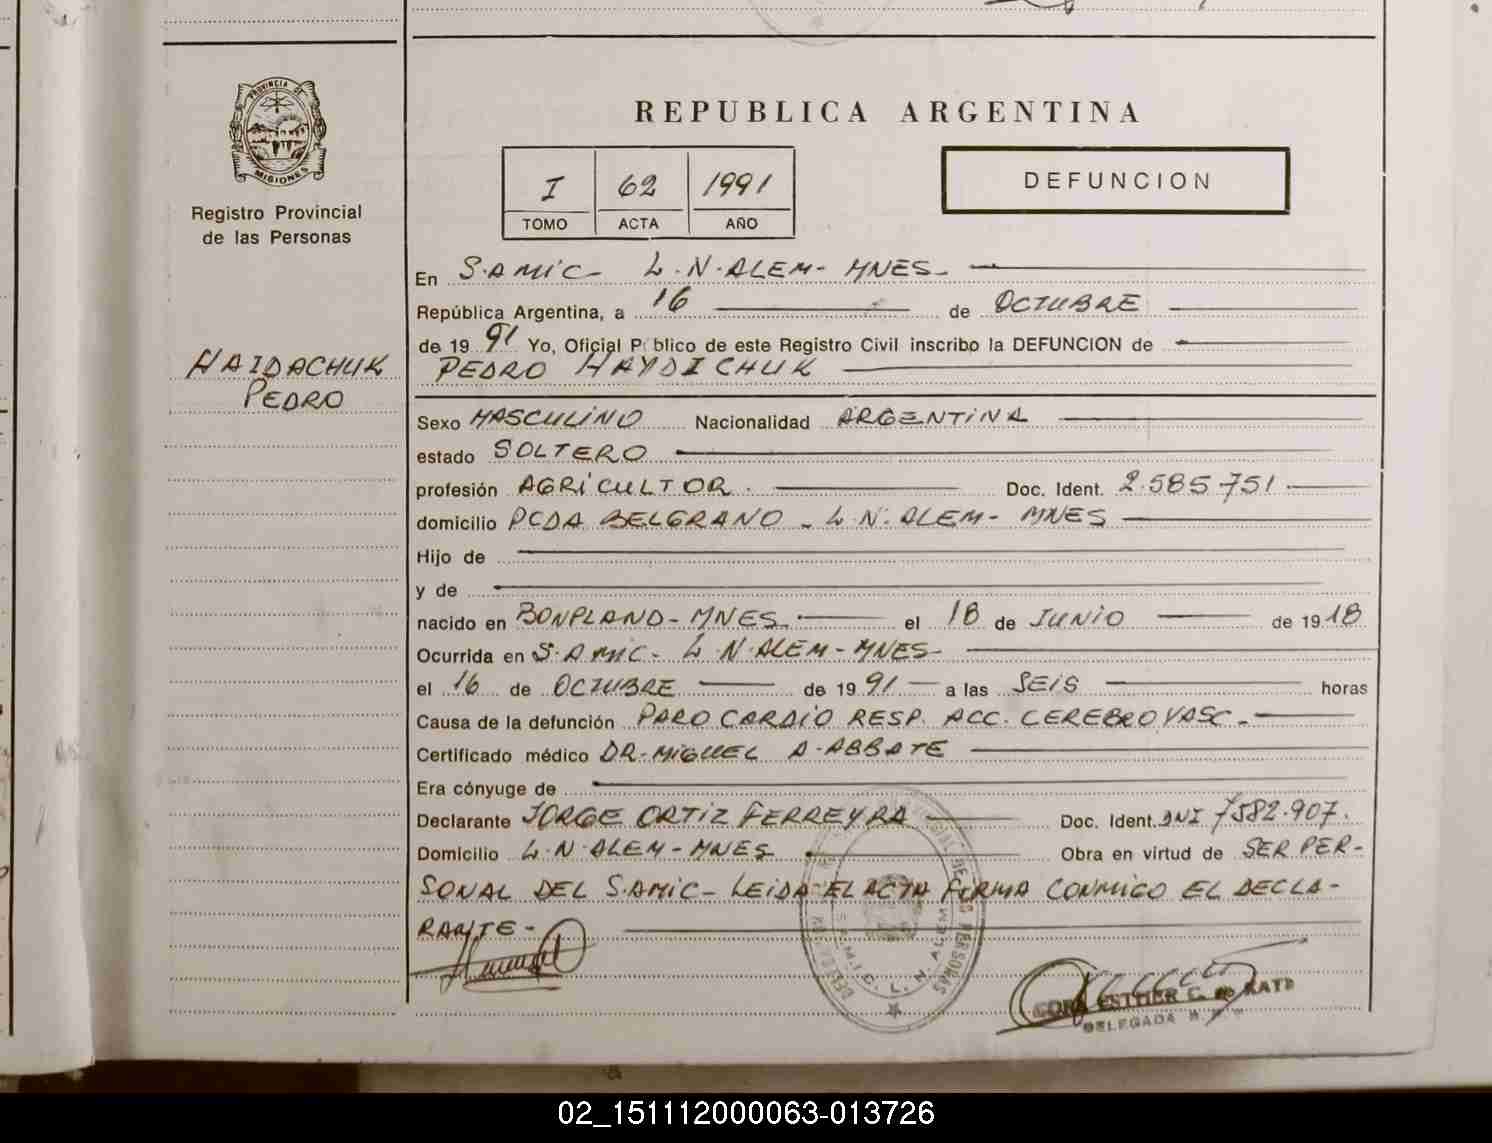 PROVINCIA DE
MISIONES
Registro Provincial
de las Personas
HAIDACHUK
PEDRO
REPUBLICA ARGENTINA
I 62 1991
TOMO ACTA AÑO
DEFUNCION
En S.AMIC- L.N.ALEM- MNES-
República Argentina, a 16 de OCTUBRE
de 1991 Yo, Oficial Público de este Registro Civil inscribo la DEFUNCION de
PEDRO HAYDICHUK
Sexo MASCULINO Nacionalidad ARGENTINA
estado SOLTERO
profesión AGRICULTOR. Doc. Ident. 2.585.751
domicilio PCDA BELGRANO - L.N. ALEM- MNES
Hijo de
y de
nacido en BONPLAND- MNES. el 18 de JUNIO de 1918
Ocurrida en S.AMIC- L.N.ALEM- MNES-
el 16 de OCTUBRE de 1991 a las SEIS horas
Causa de la defunción PARO CARDIO RESP. ACC. CEREBRO VASC.
Certificado médico DR. MIGUEL A. ABBATE
Era cónyuge de
Declarante JORGE ORTIZ FERREYRA Doc. Ident. DNI 7582.907.
Domicilio L.N ALEM- MNES Obra en virtud de SER PER-
SONAL DEL S.AMIC- LEIDA EL ACTA FIRMA CONMIGO EL DECLA-
RANTE-
S.A.M.I.C. L. N. ALEM
ESTHER C. de
DELEGADA
02_151112000063-013726